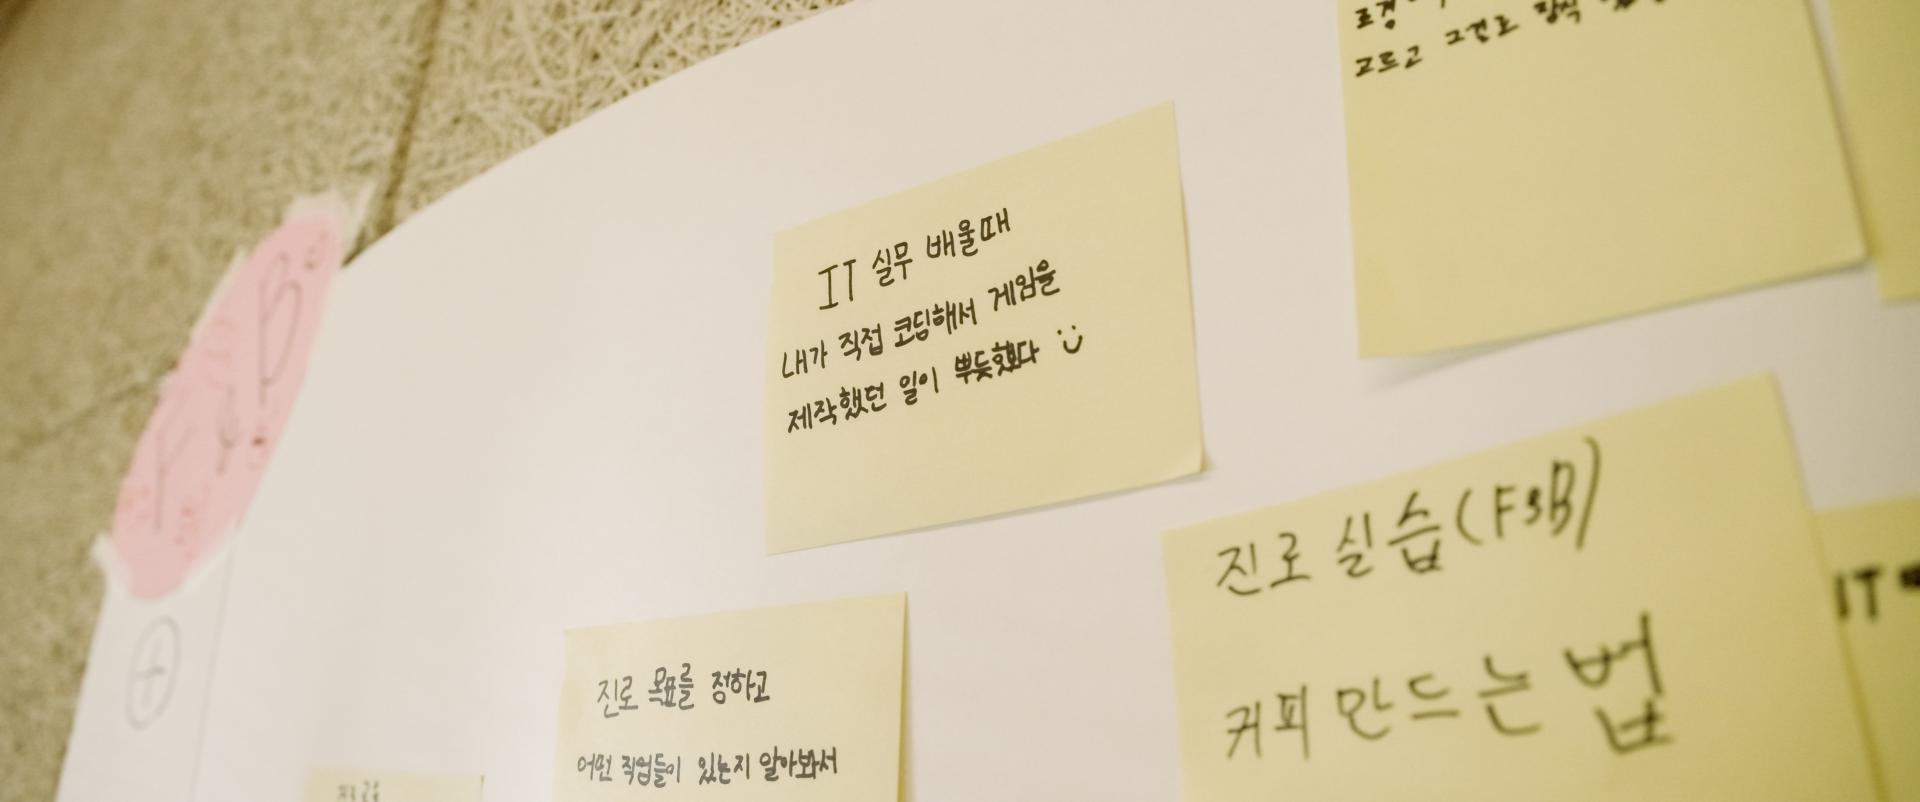 고르고 그걸로
IT 실무 배울때
내가 직접 코딩해서 게임을
제작했던 일이 뿌듯했다 :)
진로 실습(F&B)
커피 만드는 법
진로 목표를 정하고
어떤 직업들이 있는지 알아봐서
IT
F&B
+